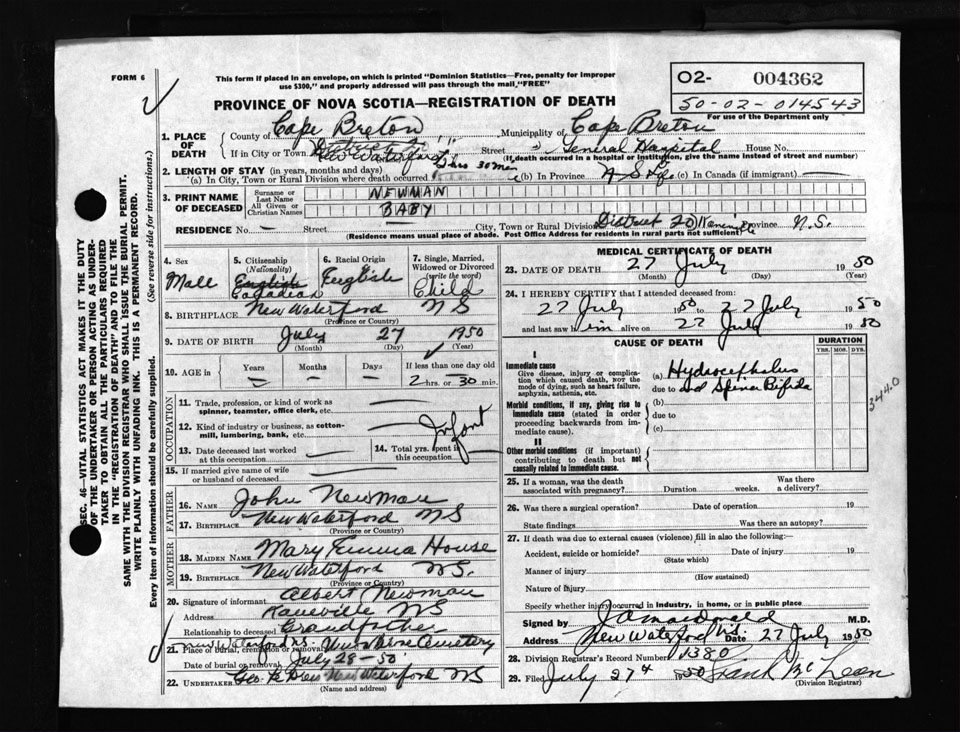 FORM 6
This form if placed in an envelope, on which is printed "Dominion Statistics—Free, penalty for improper
use $300," and properly addressed will pass through the mail "FREE"
O2- 004362
50-02-014543
For use of the Department only
PROVINCE OF NOVA SCOTIA—REGISTRATION OF DEATH
1. PLACE OF DEATH
County of Cape Breton Municipality of Cape Breton
If in City or Town New Waterford Street General Hospital House No.
(If death occurred in a hospital or institution, give the name instead of street and number)
2. LENGTH OF STAY (in years, months and days) hrs 30 min
(a) In City, Town or Rural Division where death occurred (b) In Province N S Life (c) In Canada (if immigrant) —
3. PRINT NAME OF DECEASED
Surname or Last Name NEWMAN
All Given or Christian Names BABY
RESIDENCE No. — Street City, Town or Rural Division District 20 Province N.S.
(Residence means usual place of abode. Post Office Address for residents in rural parts not sufficient)
4. Sex Male
5. Citizenship (Nationality) English Canadian
6. Racial Origin English
7. Single, Married, Widowed or Divorced (write the word) Child
8. BIRTHPLACE New Waterford N S
(Province or Country)
9. DATE OF BIRTH July 27 1950
(Month) (Day) (Year)
10. AGE in Years — Months — Days — If less than one day old 2 hrs. or 30 min.
OCCUPATION
11. Trade, profession, or kind of work as spinner, teamster, office clerk, etc. —
12. Kind of industry or business, as cotton-mill, lumbering, bank, etc. — Infant
13. Date deceased last worked at this occupation —
14. Total yrs. spent in this occupation
15. If married give name of wife or husband of deceased —
FATHER
16. NAME John Newman
17. BIRTHPLACE New Waterford N S
(Province or Country)
MOTHER
18. MAIDEN NAME Mary Emma House
19. BIRTHPLACE New Waterford N S.
(Province or Country)
20. Signature of informant Albert Newman
Address N S
Relationship to deceased Grandfather
21. Place of burial, cremation or removal Cemetery
Date of burial or removal July 28-50
22. UNDERTAKER New Waterford N S
(Name and address)
MEDICAL CERTIFICATE OF DEATH
23. DATE OF DEATH 27 July 1950
(Month) (Day) (Year)
24. I HEREBY CERTIFY that I attended deceased from:
27 July 1950 to 27 July 1950
and last saw him alive on 27 July 1950
CAUSE OF DEATH
DURATION
YRS. MOS. DYS.
I
Immediate cause
Give disease, injury or complication which caused death, not the mode of dying, such as heart failure, asphyxia, asthenia, etc.
(a) Hydrocephalus
due to Spina Bifida
Morbid conditions, if any, giving rise to immediate cause (stated in order proceeding backwards from immediate cause).
(b)
due to
(c)
II
Other morbid conditions (if important) contributing to death but not causally related to immediate cause.
3440
25. If a woman, was the death associated with pregnancy? Duration weeks. Was there a delivery?
26. Was there a surgical operation? Date of operation 19
State findings Was there an autopsy?
27. If death was due to external causes (violence) fill in also the following:
Accident, suicide or homicide? Date of injury 19
(State which)
Manner of injury
(How sustained)
Nature of Injury
Specify whether injury occurred in industry, in home, or in public place
Signed by J A Macdonald M.D.
Address New Waterford N.S. Date 27 July 1950
28. Division Registrar's Record Number 1380
29. Filed July 27th 1950 Frank McLean
(Division Registrar)
SEC. 46—VITAL STATISTICS ACT MAKES IT THE DUTY
OF THE UNDERTAKER OR PERSON ACTING AS UNDER-
TAKER TO OBTAIN ALL THE PARTICULARS REQUIRED
IN THE "REGISTRATION OF DEATH" AND TO FILE THE
SAME WITH THE DIVISION REGISTRAR WHO SHALL ISSUE THE BURIAL PERMIT.
WRITE PLAINLY WITH UNFADING INK. THIS IS A PERMANENT RECORD.
Every item of information should be carefully supplied. (See reverse side for instructions.)